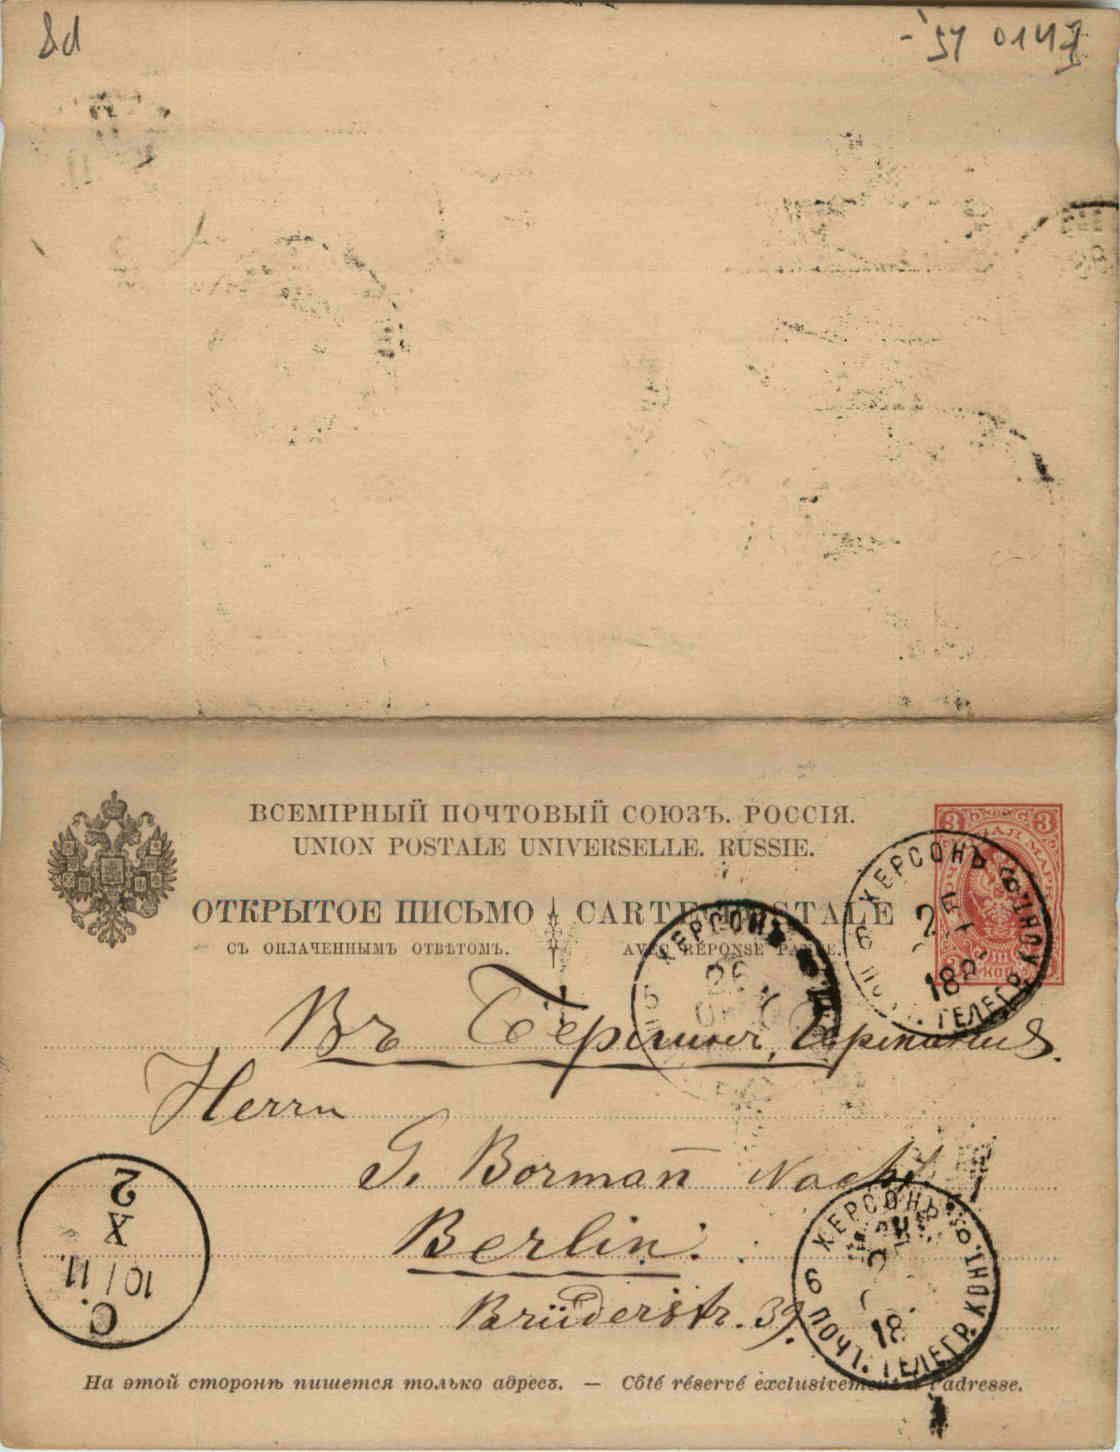 ВСЕМІРНЫЙ ПОЧТОВЫЙ СОЮЗЪ. РОССІЯ.
UNION POSTALE UNIVERSELLE. RUSSIE.
ОТКРЫТОЕ ПИСЬМО CARTE POSTALE
СЪ ОПЛАЧЕННЫМЪ ОТВѢТОМЪ. AVEC RÉPONSE PAYÉE.
3 3
МАРКА
КОП
ХЕРСОНЪ
6 ПОЧТ. ТЕЛЕГР. КОНТ.
188
ХЕРСОНЪ
26
Въ Берлинъ, Германія.
Herrn
G. Borman̄ Nachf.
Berlin.
Brüderstr. 39.
2
X
10 / 11
C.
ХЕРСОНЪ
6 ПОЧТ. ТЕЛЕГР. КОНТ.
18
На этой сторонѣ пишется только адресъ. — Côté réservé exclusivement à l'adresse.